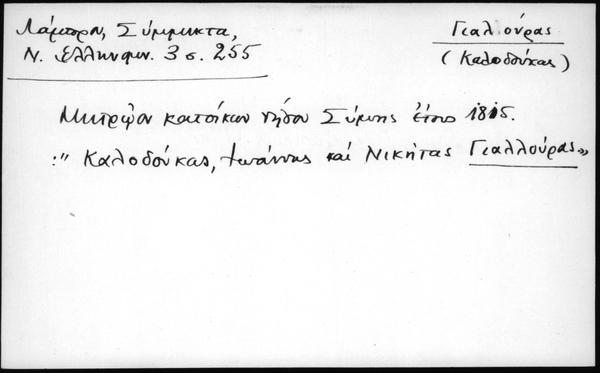 Λάμπρου, Σύμμικτα,
Ν. Ελληνομν. 3 σ. 255
Γιαλούρας
(Καλοδούκας)
Μητρῷον κατοίκων νήσου Σύμης ἔτους 1815.
:" Καλοδούκας, Ἰωάννης καί Νικήτας Γιαλλούρας»